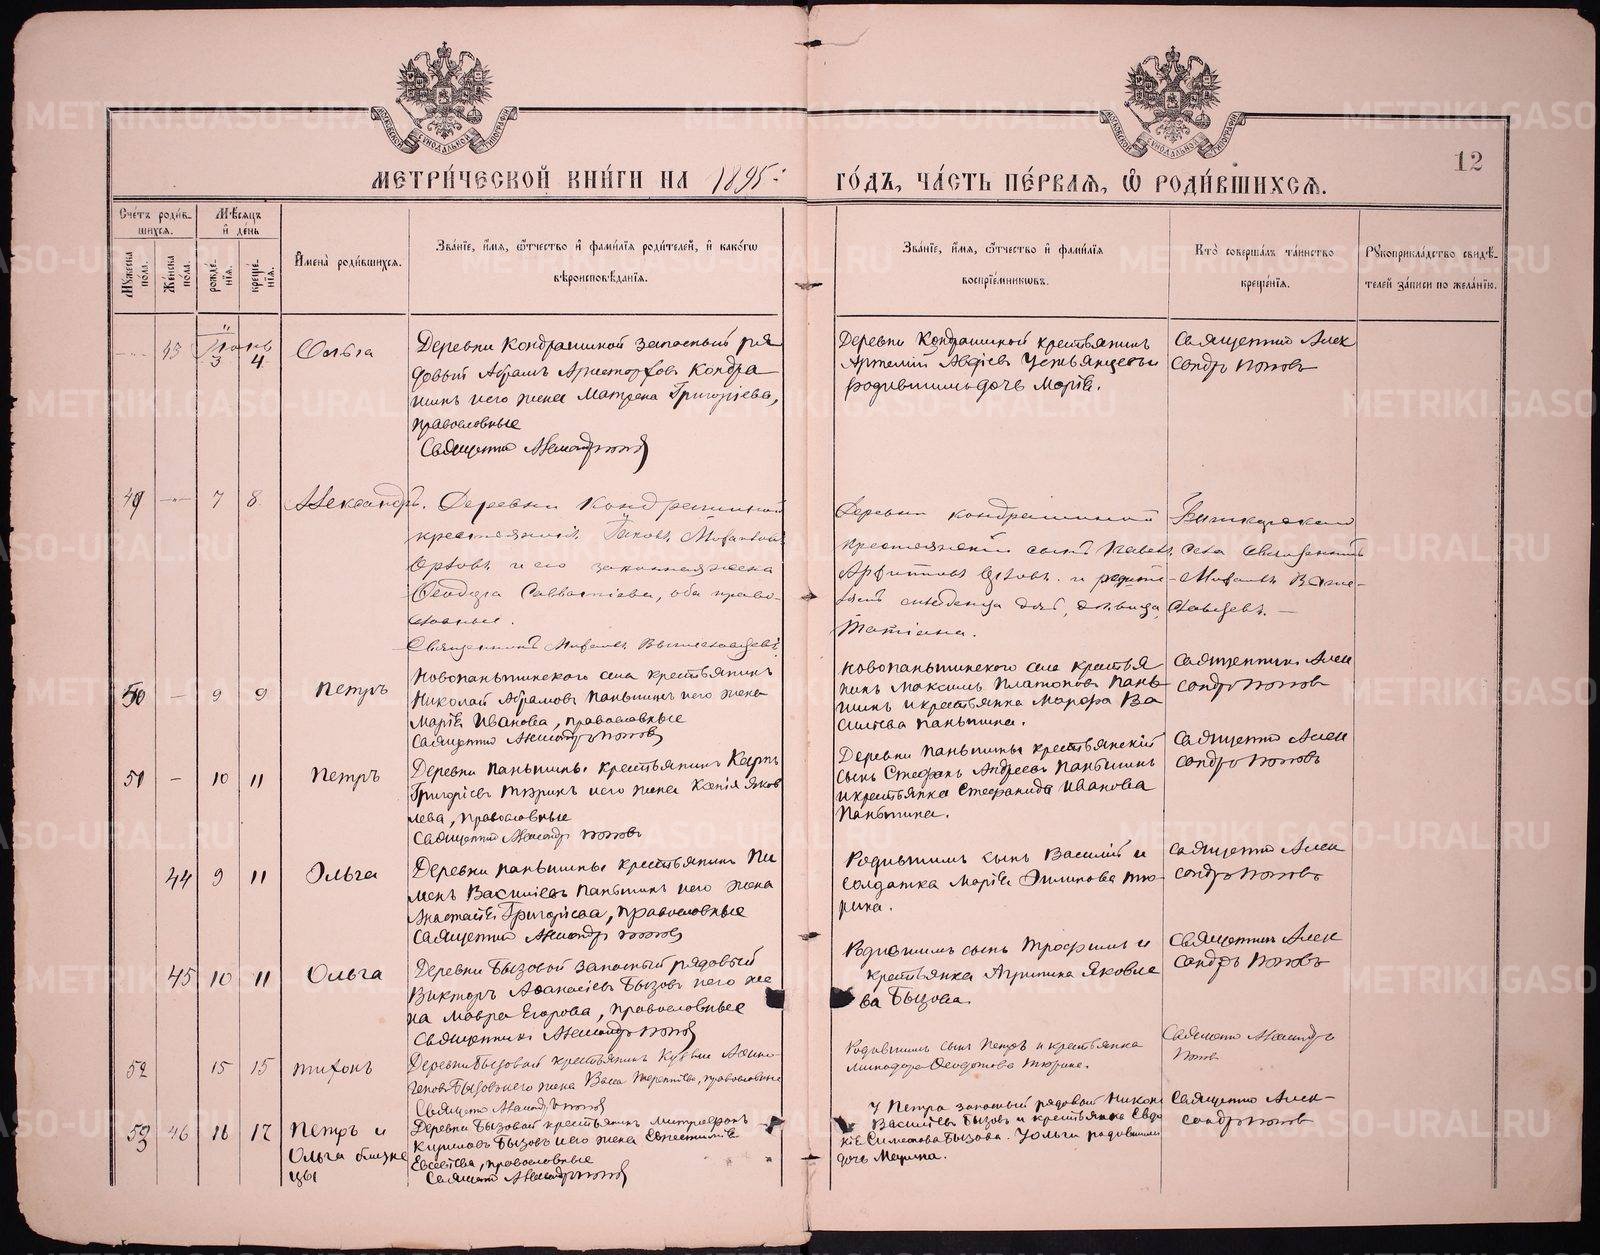 МОСКОВСКОЙ СѴНОДАЛЬНОЙ ТИПОГРАФІИ
МОСКОВСКОЙ СѴНОДАЛЬНОЙ ТИПОГРАФІИ
12
МЕТРИ́ЧЕСКОЙ КНИ́ГИ НА 1895: ГО́ДЪ, ЧА́СТЬ ПЕ́РВАЯ, Ѡ РОДИ́ВШИХСЯ.
Сче́тъ роди́в-
шихся.
Му́жеска пола.
Же́нска пола.
Мѣсяцъ
и́ де́нь
рожде́нїя.
креще́нїя.
И́мена̀ роди́вшихся.
Зва́нїе, и́мя, ѻ́тчество и́ фами́лїя роди́телей, и́ како́гѡ
вѣроисповѣ́данїя.
Зва́нїе, и́мя, ѻ́тчество и́ фами́лїя
воспрїе́мниковъ.
Кто̀ соверша́лъ та́инство
креще́нїя.
Рꙋкоприкла́дство свидѣ́-
телей за́писи по жела́нїю.
43 Іюнь 3 4 Ольга
Деревни Кондрашиной запасный ря
довый Абрамъ Аристарховъ Кондра
шинъ и его жена Матрена Григоріева,
православные
Священникъ Александръ Поповъ
Деревни Кондрашиной крестьянинъ
Артемій Авдіевъ Устьянцевъ и
родившимъ дочь Марія.
Священникъ Алек
сандръ Поповъ
49 — 7 8 Александръ.
Деревни Кондрашиной
крестьянинъ Яковъ
Орловъ и его законная жена
Ѳеодора Савватіева, оба право-
славные.
Священникъ
Деревни Кондрашиной
крестьянскій сынъ Павелъ
Орловъ и
дочь, дѣвица
Татіана.
села священникъ
50 — 9 9 Петръ
Новопаньшинскаго села крестьянинъ
Николай Абрамовъ Паньшинъ и его жена
Марія Иванова, православные
Священникъ Александръ Поповъ
Новопаньшинскаго села крестья
нинъ Максимъ Платоновъ Пань
шинъ и крестьянка Марфа Ва
сильева Паньшина.
Священникъ Алек
сандръ Поповъ
51 — 10 11 Петръ
Деревни Паньшины крестьянинъ Карпъ
Григоріевъ Тюринъ и его жена Ксенія Яков
лева, православные
Священникъ Александръ Поповъ
Деревни Паньшины крестьянскій
сынъ Стефанъ Андреевъ Паньшинъ
и крестьянка Стефанида Иванова
Паньшина.
Священникъ Алек
сандръ Поповъ
44 9 11 Ольга
Деревни Паньшины крестьянинъ Пи
менъ Василіевъ Паньшинъ и его жена
Анастасія Григоріева, православные
Священникъ Александръ Поповъ
Родившимъ сынъ Василій и
солдатка Марія Филипова Тю
рина.
Священникъ Алек
сандръ Поповъ
45 10 11 Ольга
Деревни Бызовой запасный рядовый
Викторъ Аѳанасіевъ Бызовъ и его же
на Мавра Егорова, православные
Священникъ Александръ Поповъ
Родившимъ сынъ Трофимъ и
крестьянка Агрипина Яковле
ва Бызова.
Священникъ Алек
сандръ Поповъ
52 15 15 Тихонъ
Деревни Бызовой крестьянинъ
Бызовъ и его жена Васса Терентіева, православные
Священникъ Александръ Поповъ
Родившимъ сынъ Петръ и крестьянка
Ѳеодотова Тюрина.
Священникъ Александръ
Поповъ
53 46 16 17 Петръ и
Ольга близне
цы
Деревни Бызовой крестьянинъ Митрофанъ
Кириловъ Бызовъ и его жена
Евсеіева, православные
Священникъ Александръ Поповъ
У Петра запасный рядовой Никон
Василіевъ Бызовъ и крестьянка Евдо
кія Симеонова Бызова. У Ольги родившими
дочь Марина.
Священникъ Алек-
сандръ Поповъ
METRIKI.GASO-URAL.RU